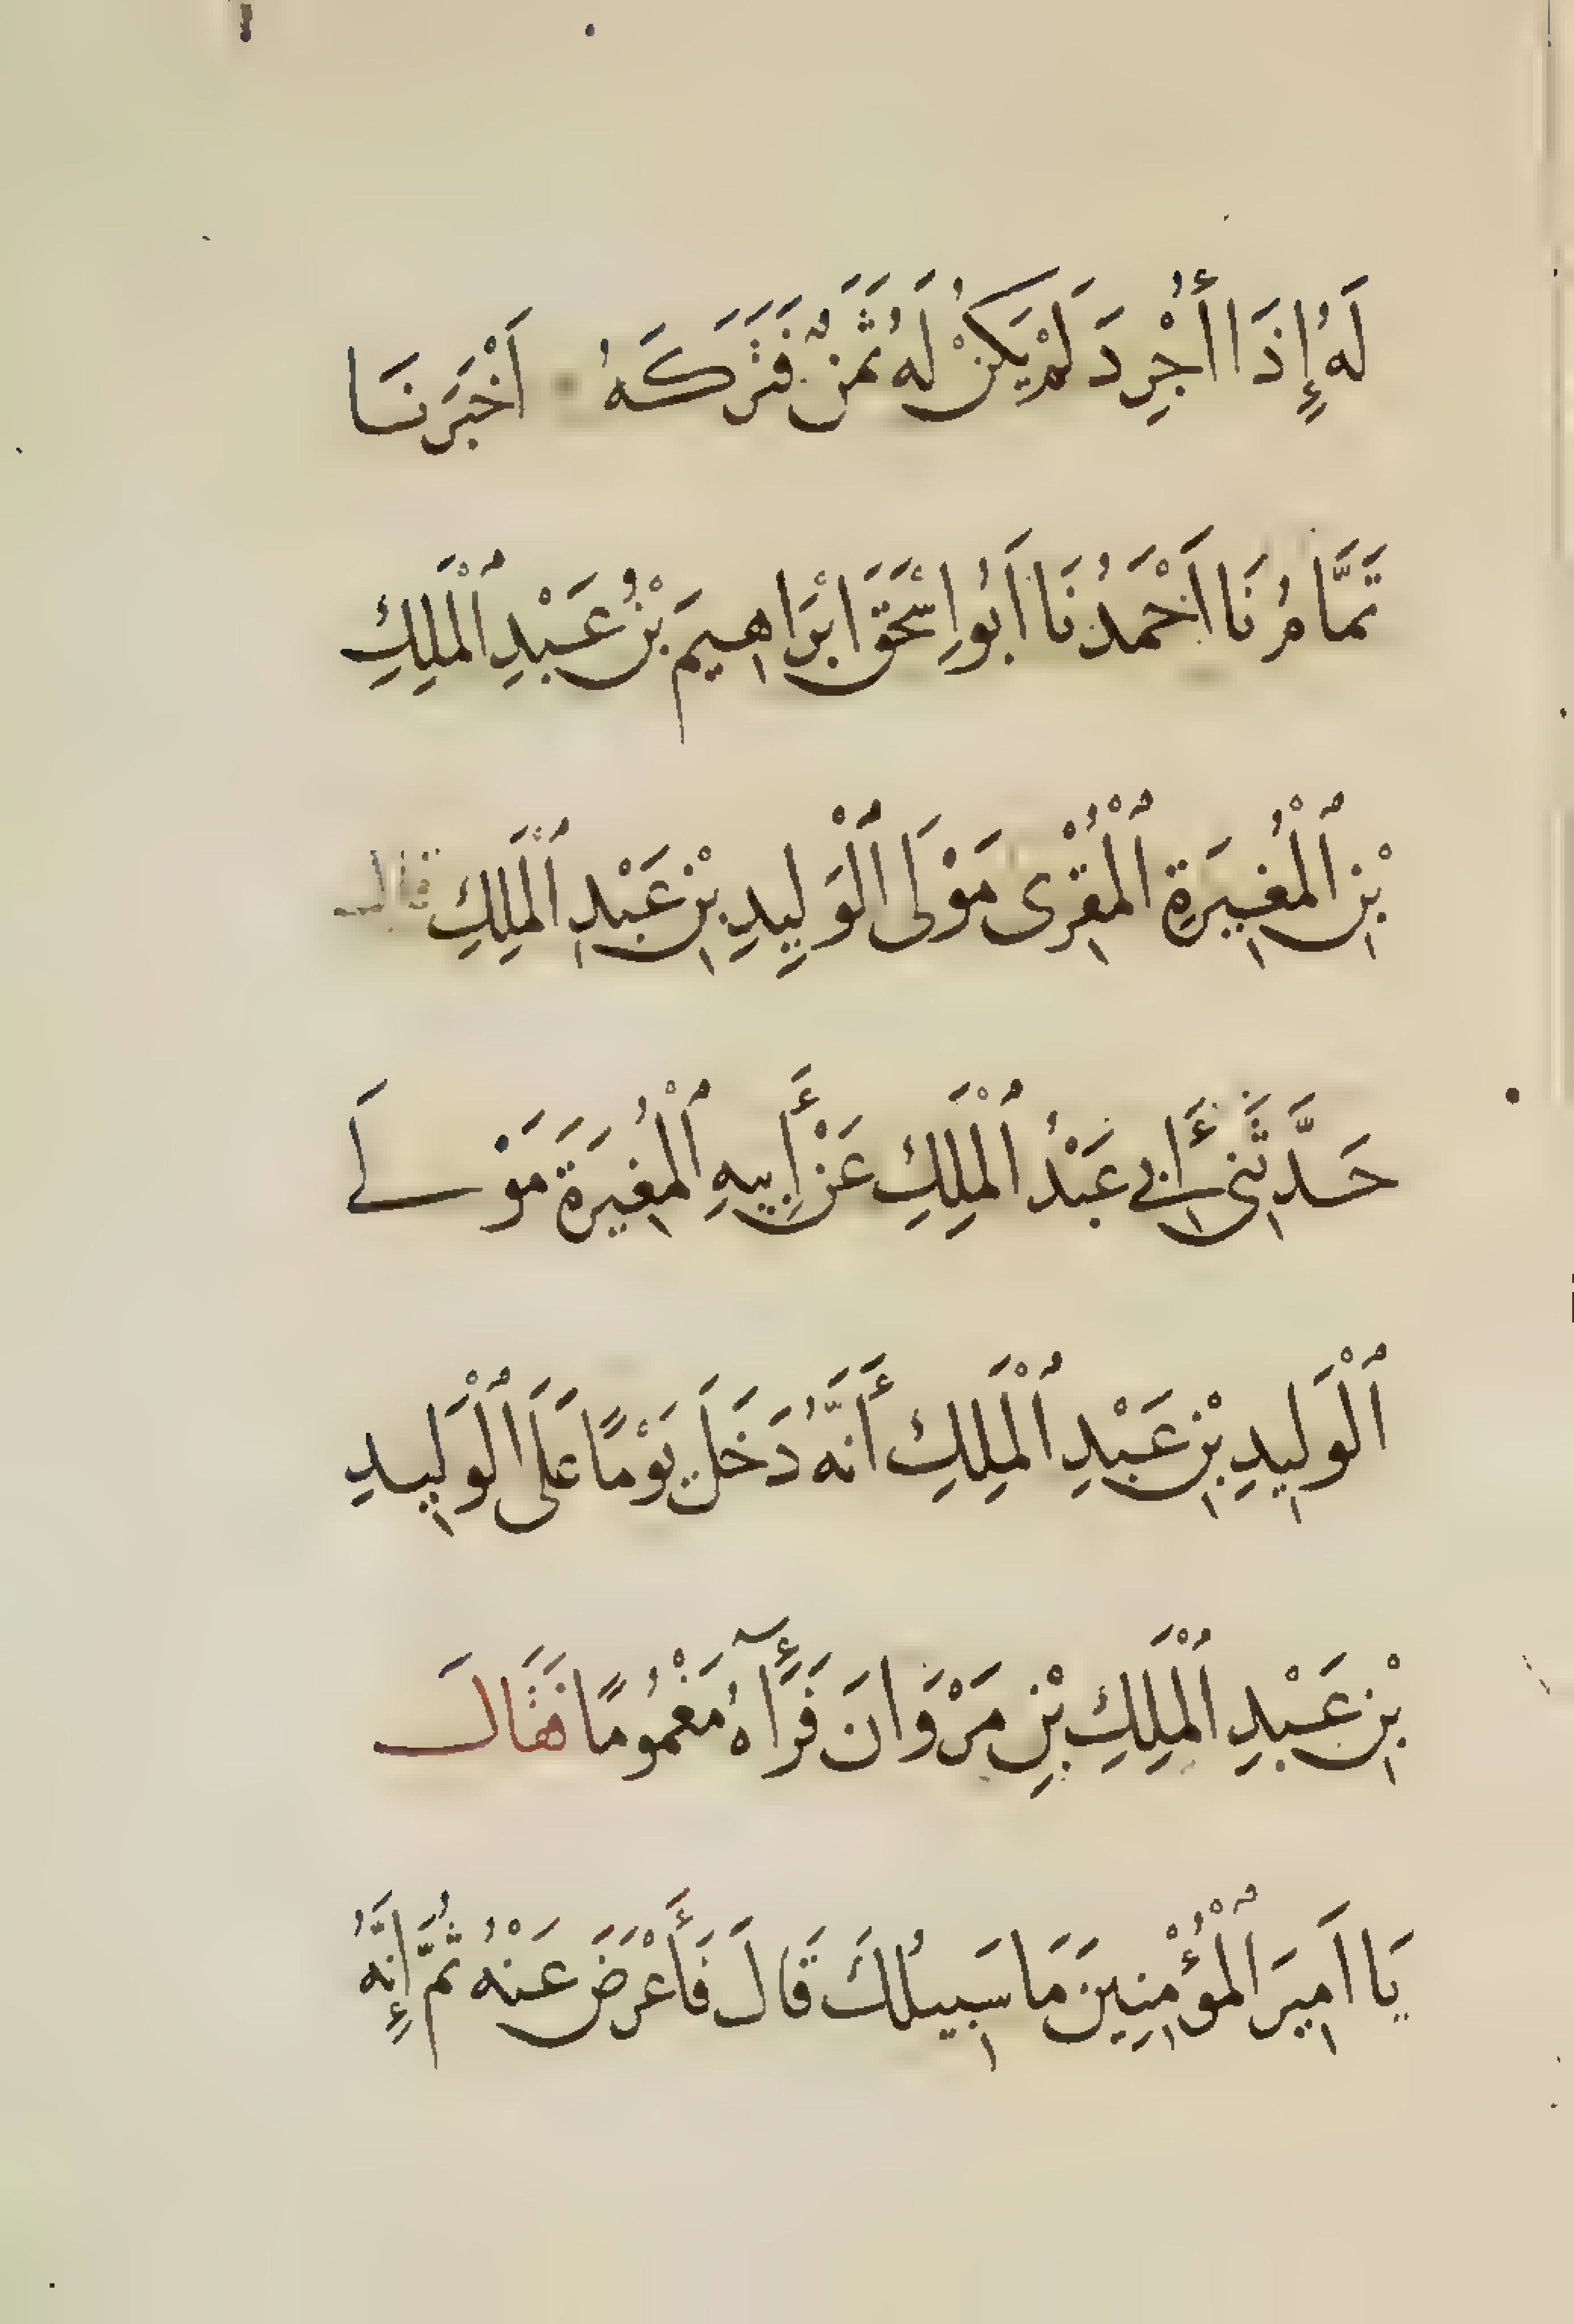 لَهُ إِذَا أُجْرِدَ لَمْ يَكُنْ لَهُ ثَمَنٌ فَتَرَكَهُ أَخْبَرَنَا
تَمَّامُ نَا أَحْمَدُ نَا أَبُو إِسْحَقَ ابْرَاهِيمَ بْنُ عَبْدِ ٱلْمَلِكِ
بْنِ ٱلْمُغِيَرةِ ٱلْمُقْرِى مَوْلَى ٱلْوَلِيدِ بْنِ عَبْدِ ٱلْمَلِكِ قال
حَدَّثَنِى أَبِي عَبْدُ ٱلْمَلِكِ عَنْ أَبِيهِ ٱلْمُغِيرَةَ مَوْلَى
ٱلْوَلِيدِ بْنِ عَبْدِ ٱلْمَلِكِ أَنَّهُ دَخَلَ يَوْمًا عَلَى ٱلْوَلِيدِ
بْنِ عَبْدِ ٱلْمَلِكِ بْنِ مَرْوَانَ فَرَأَٓهُ مَغْمُومًا فَقَالَ
يَا اَمِيرَ ٱلْمُؤْمِنِينَ مَا سَبِيلُكَ قَالَ فَأَعْرَضَ عَنْهُ ثُمَّ إِنَّهُ